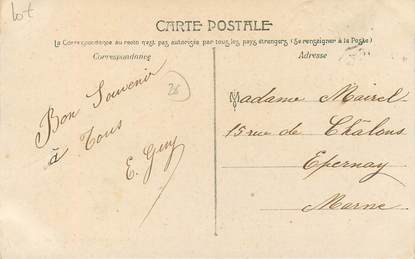 lot
CARTE POSTALE
La Correspondance au recto n'est pas autorisée par tous les pays étrangers (Se renseigner à la Poste)
Correspondance
Adresse
26
Bon Souvenir
à Tous
E. Guy
Madame Mairel
15 rue de Châlons
Epernay
Marne